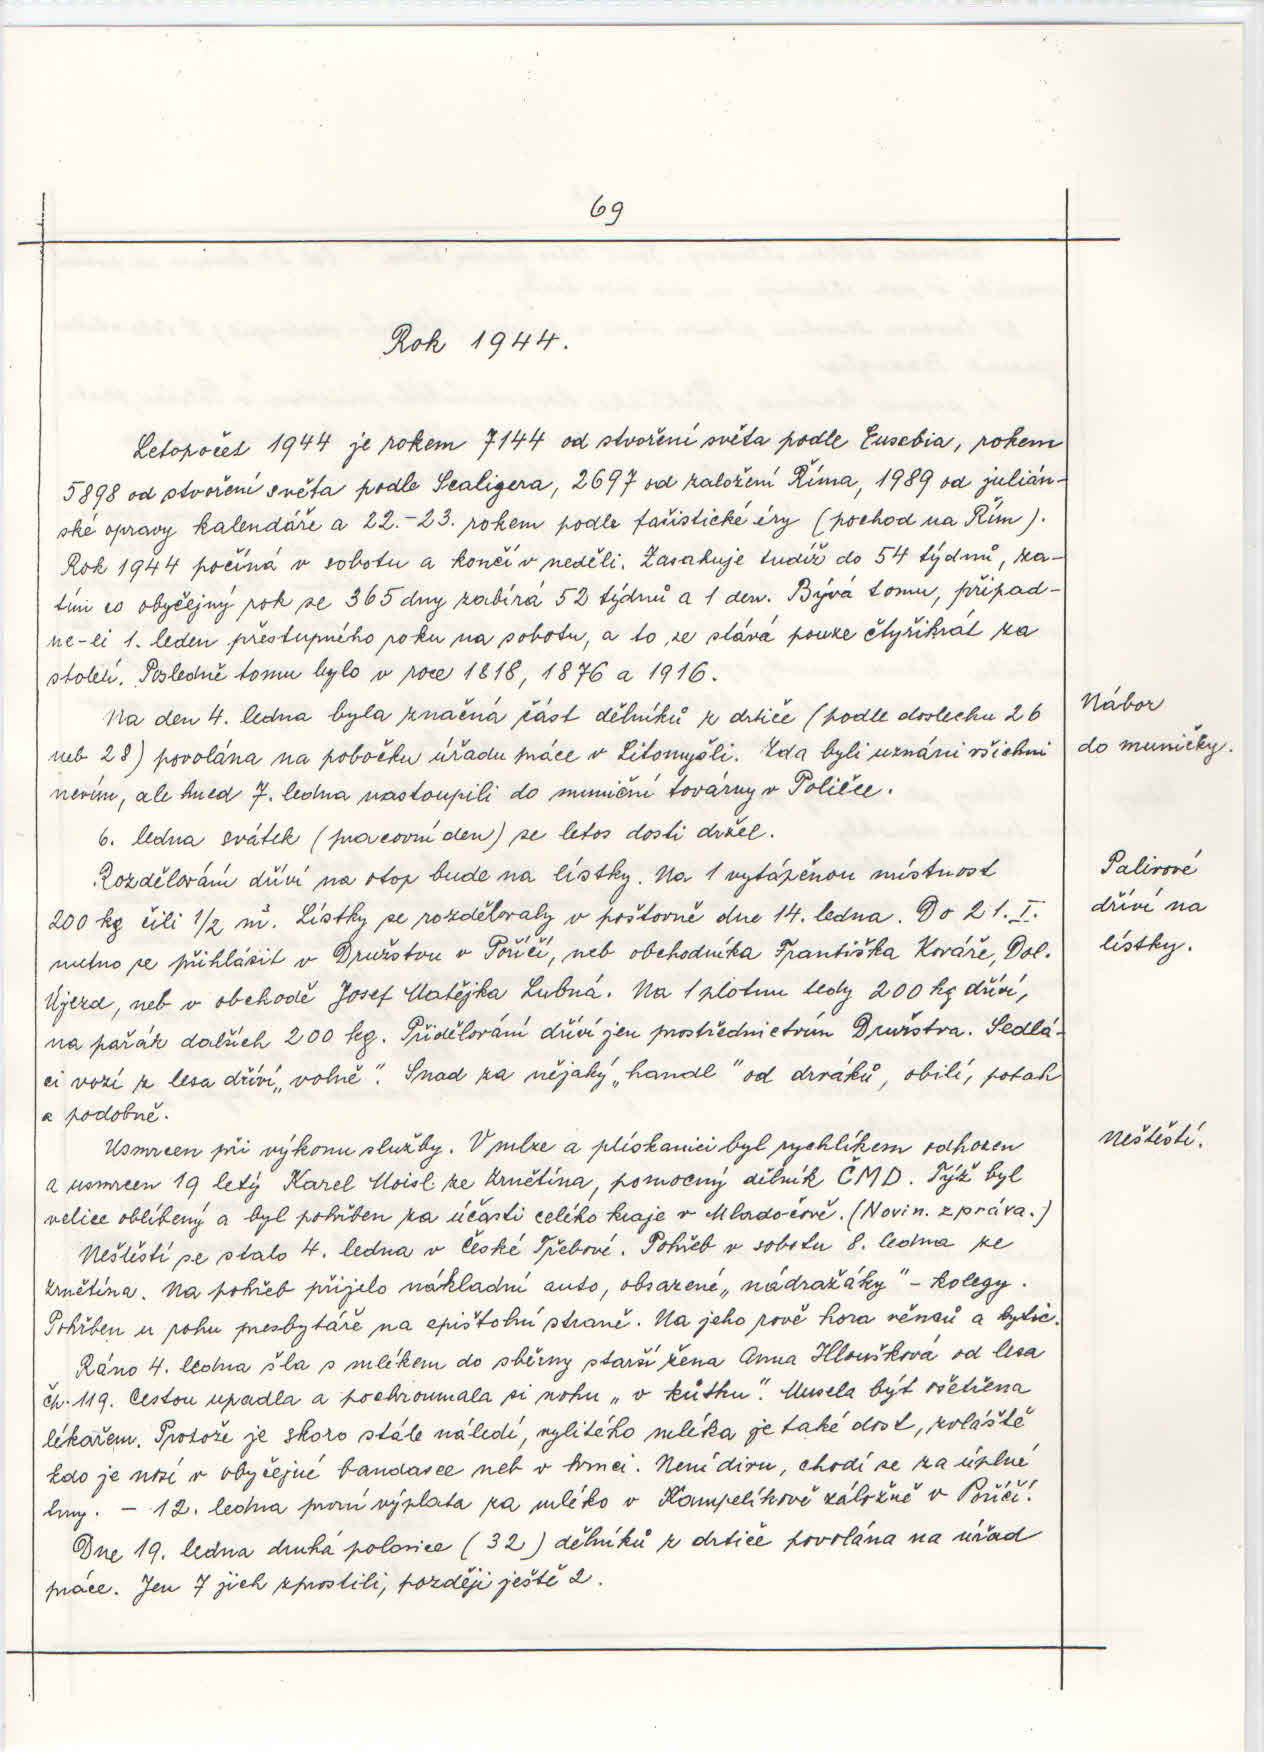 69
Rok 1944.
Letopočet 1944 je rokem 7144 od stvoření světa podle Eusebia, rokem
5898 od stvoření světa podle Scaligera, 2697 od založení Říma, 1989 od julián-
ské opravy kalendáře a 22.-23. rokem podle fašistické éry (pochod na Řím).
Rok 1944 počíná v sobotu a končí v neděli. Zasahuje tudíž do 54 týdnů, za-
tím co obyčejný rok se 365 dny zabírá 52 týdnů a 1 den. Bývá tomu, připad-
ne-li 1. leden přestupného roku na sobotu, a to se stává pouze čtyřikrát za
století. Posledně tomu bylo v roce 1818, 1876 a 1916.
Na den 4. ledna byla značná část dělníků z drtiče (podle doslechu 26
neb 28) povolána na pobočku úřadu práce v Litomyšli. Zda byli uznáni všichni
nevím, ale hned 7. ledna nastoupili do muniční továrny v Poličce.
Nábor
do muničky.
6. ledna svátek (pracovní den) se letos dosti držel.
Rozdělování dříví na otop bude na lístky. Na 1 vytápěnou místnost
200 kg čili 1/2 m³. Lístky se rozdělovaly v poštovně dne 14. ledna. Do 21. I.
nutno se přihlásit v Družstvu v Poříčí, neb obchodníka Františka Kováře, Dol.
Újezd, neb v obchodě Josef Matějka Lubná. Na 1 plotnu tedy 200 kg dříví,
na pařák dalších 200 kg. Přidělování dříví jen prostřednictvím Družstva. Sedlá-
ci vozí z lesa dříví „volně". Snad za nějaký „handl" od drváků, obilí, potah
a podobně.
Palivové
dříví na
lístky.
Usmrcen při výkonu služby. V mlze a plískanici byl rychlíkem odhozen
a usmrcen 19 letý Karel Moisl ze Zrnětína, pomocný dělník ČMD. Týž byl
velice oblíbený a byl pohřben za účasti celého kraje v Mladočově. (Novin. zpráva.)
Neštěstí.
Neštěstí se stalo 4. ledna v České Třebové. Pohřeb v sobotu 8. ledna ze
Zrnětína. Na pohřeb přijelo nákladní auto, obsazené „nádražáky" - kolegy.
Pohřben u rohu presbytáře na epištolní straně. Na jeho rově hora věnců a kytic.
Ráno 4. ledna šla s mlékem do sběrny starší žena Anna Hloušková od lesa
čp. 119. Cestou upadla a pochroumala si nohu „v kůtku". Musela být ošetřena
lékařem. Protože je skoro stále náledí, vylitého mléka je také dost, zvláště
kdo je nosí v obyčejné bandasce neb v hrnci. Není divu, chodí se za úplné
tmy. - 12. ledna první výplata za mléko v Kampelíkově záložně v Poříčí.
Dne 19. ledna druhá polovice (32) dělníků z drtiče povolána na úřad
práce. Jen 7 jich zprostili, později ještě 2.